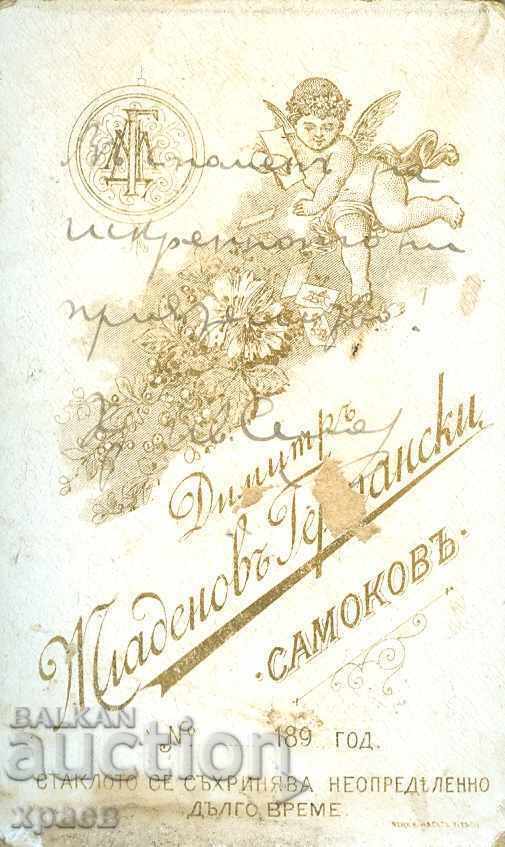 Въ паметь на
искренното ни
приятелство.
Димитръ
Младеновъ
САМОКОВЪ.
№ 189 ГОД.
СТАКЛОТО СЕ СЪХРИНЯВА НЕОПРЕДѢЛЕННО
ДЪЛГО ВРЕМЕ.
BALKAN
auction
храев